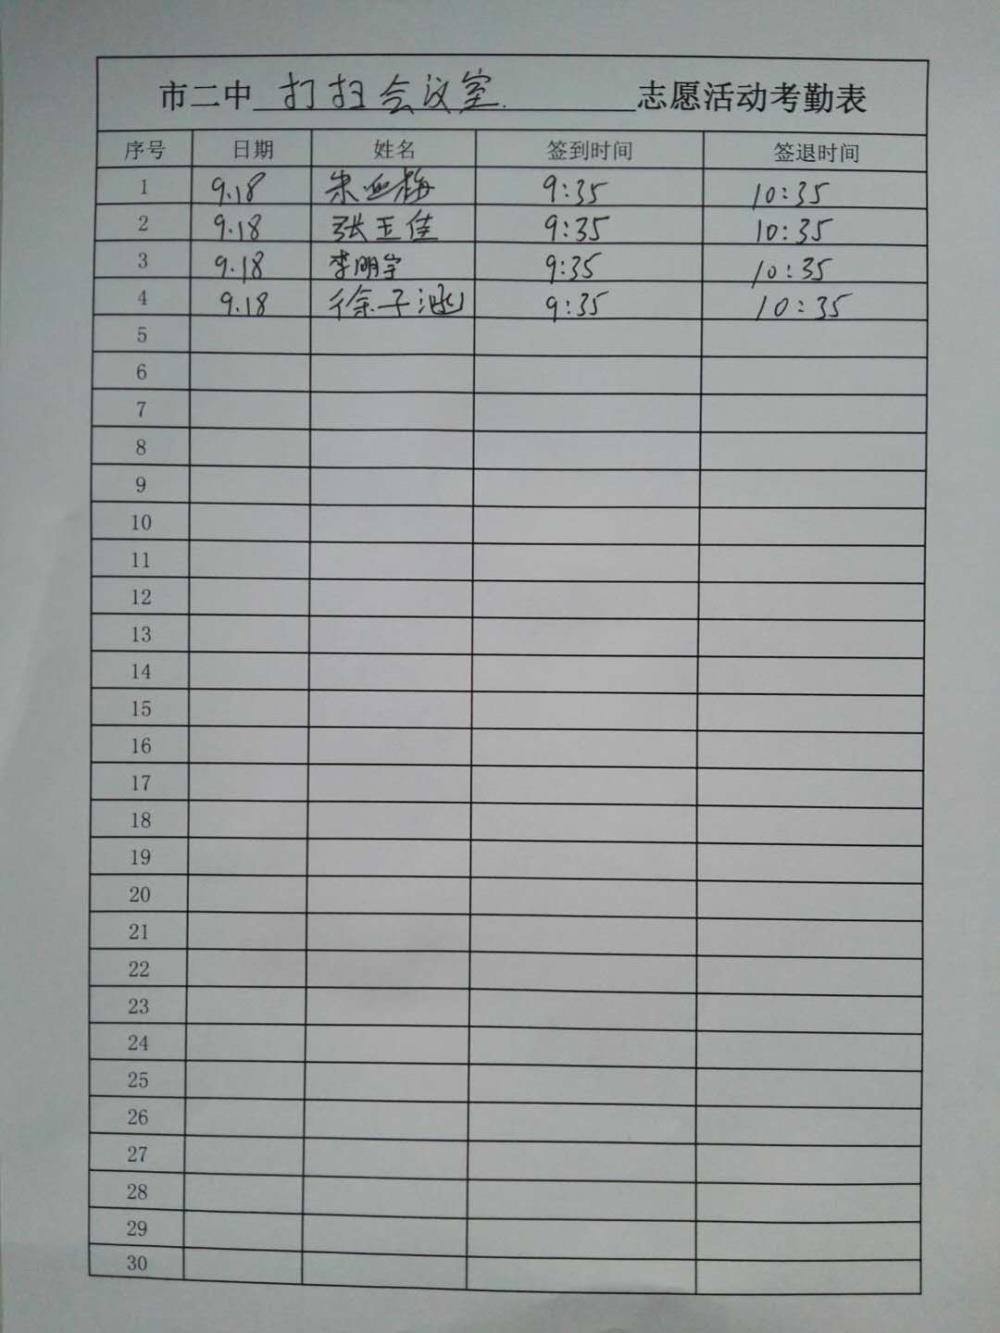 市二中 打扫会议室 志愿活动考勤表
序号 日期 姓名 签到时间 签退时间
1 9.18 9:35 10:35
2 9.18 张玉佳 9:35 10:35
3 9.18 李明宇 9:35 10:35
4 9.18 徐子涵 9:35 10:35
5
6
7
8
9
10
11
12
13
14
15
16
17
18
19
20
21
22
23
24
25
26
27
28
29
30